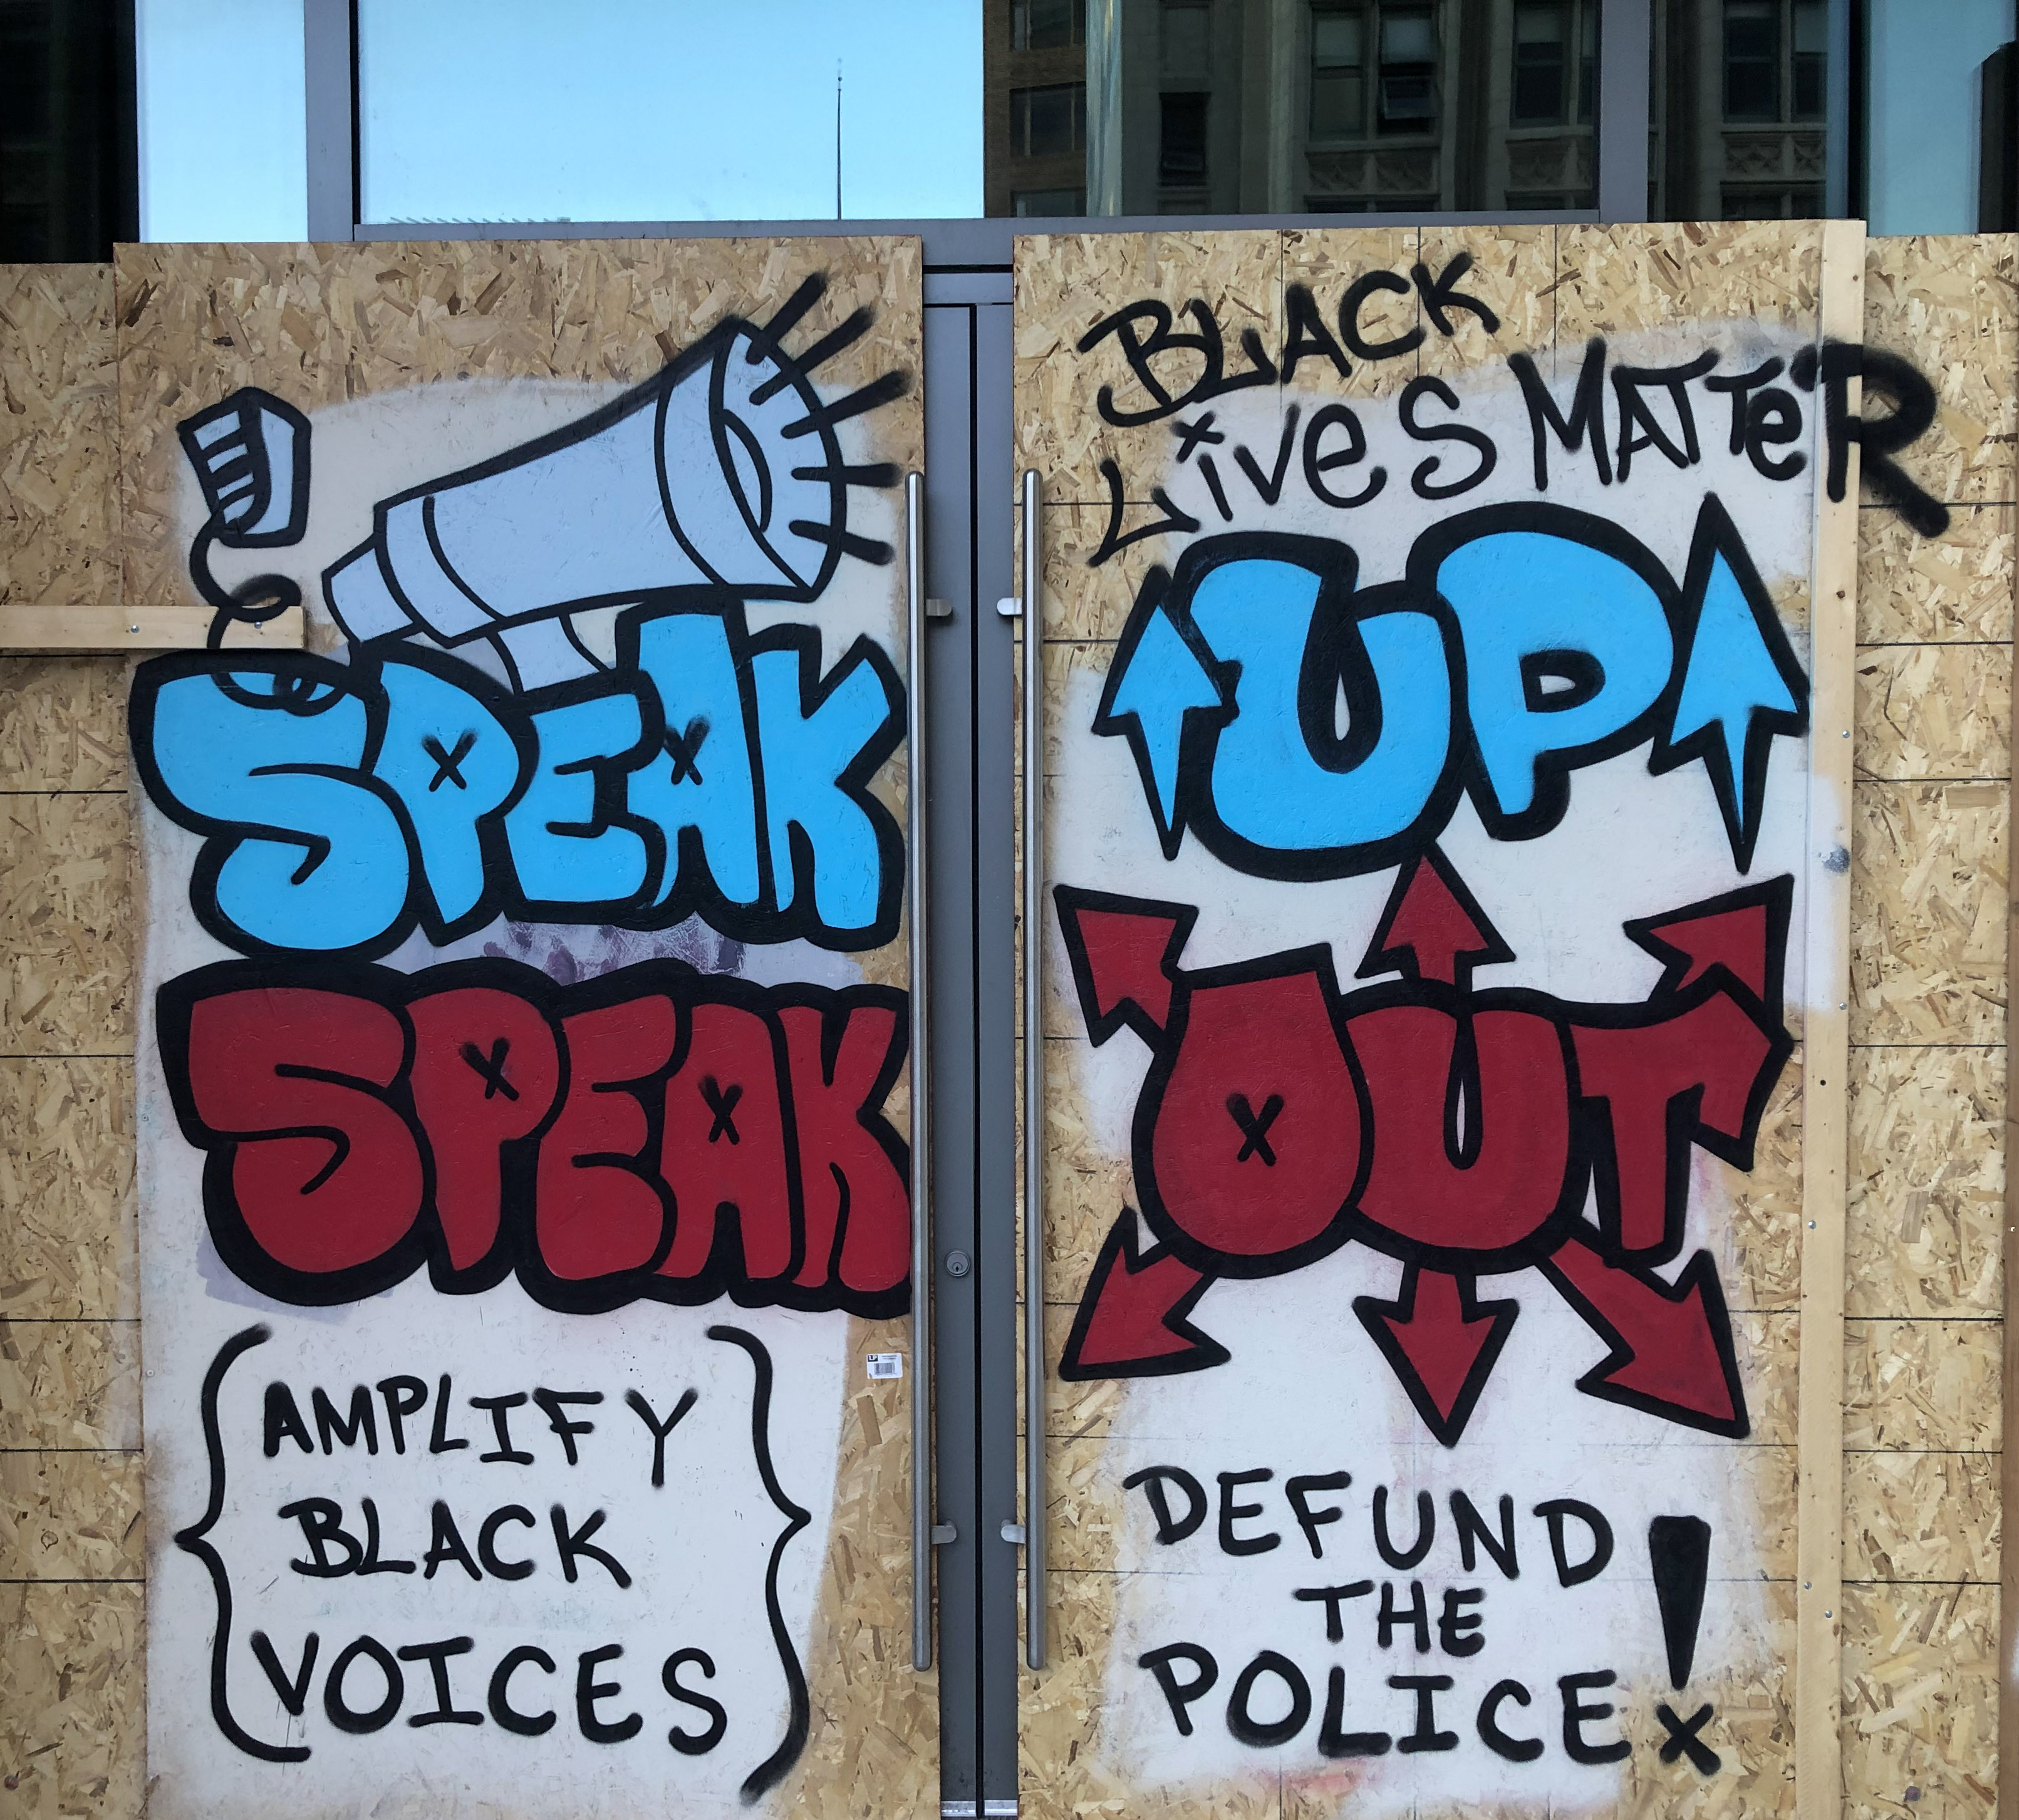 BLACK
LiveS MATTeR
SPEAK UP
SPEAK OUT
AMPLIFY
BLACK
VOICES
DEFUND
THE
POLICE!